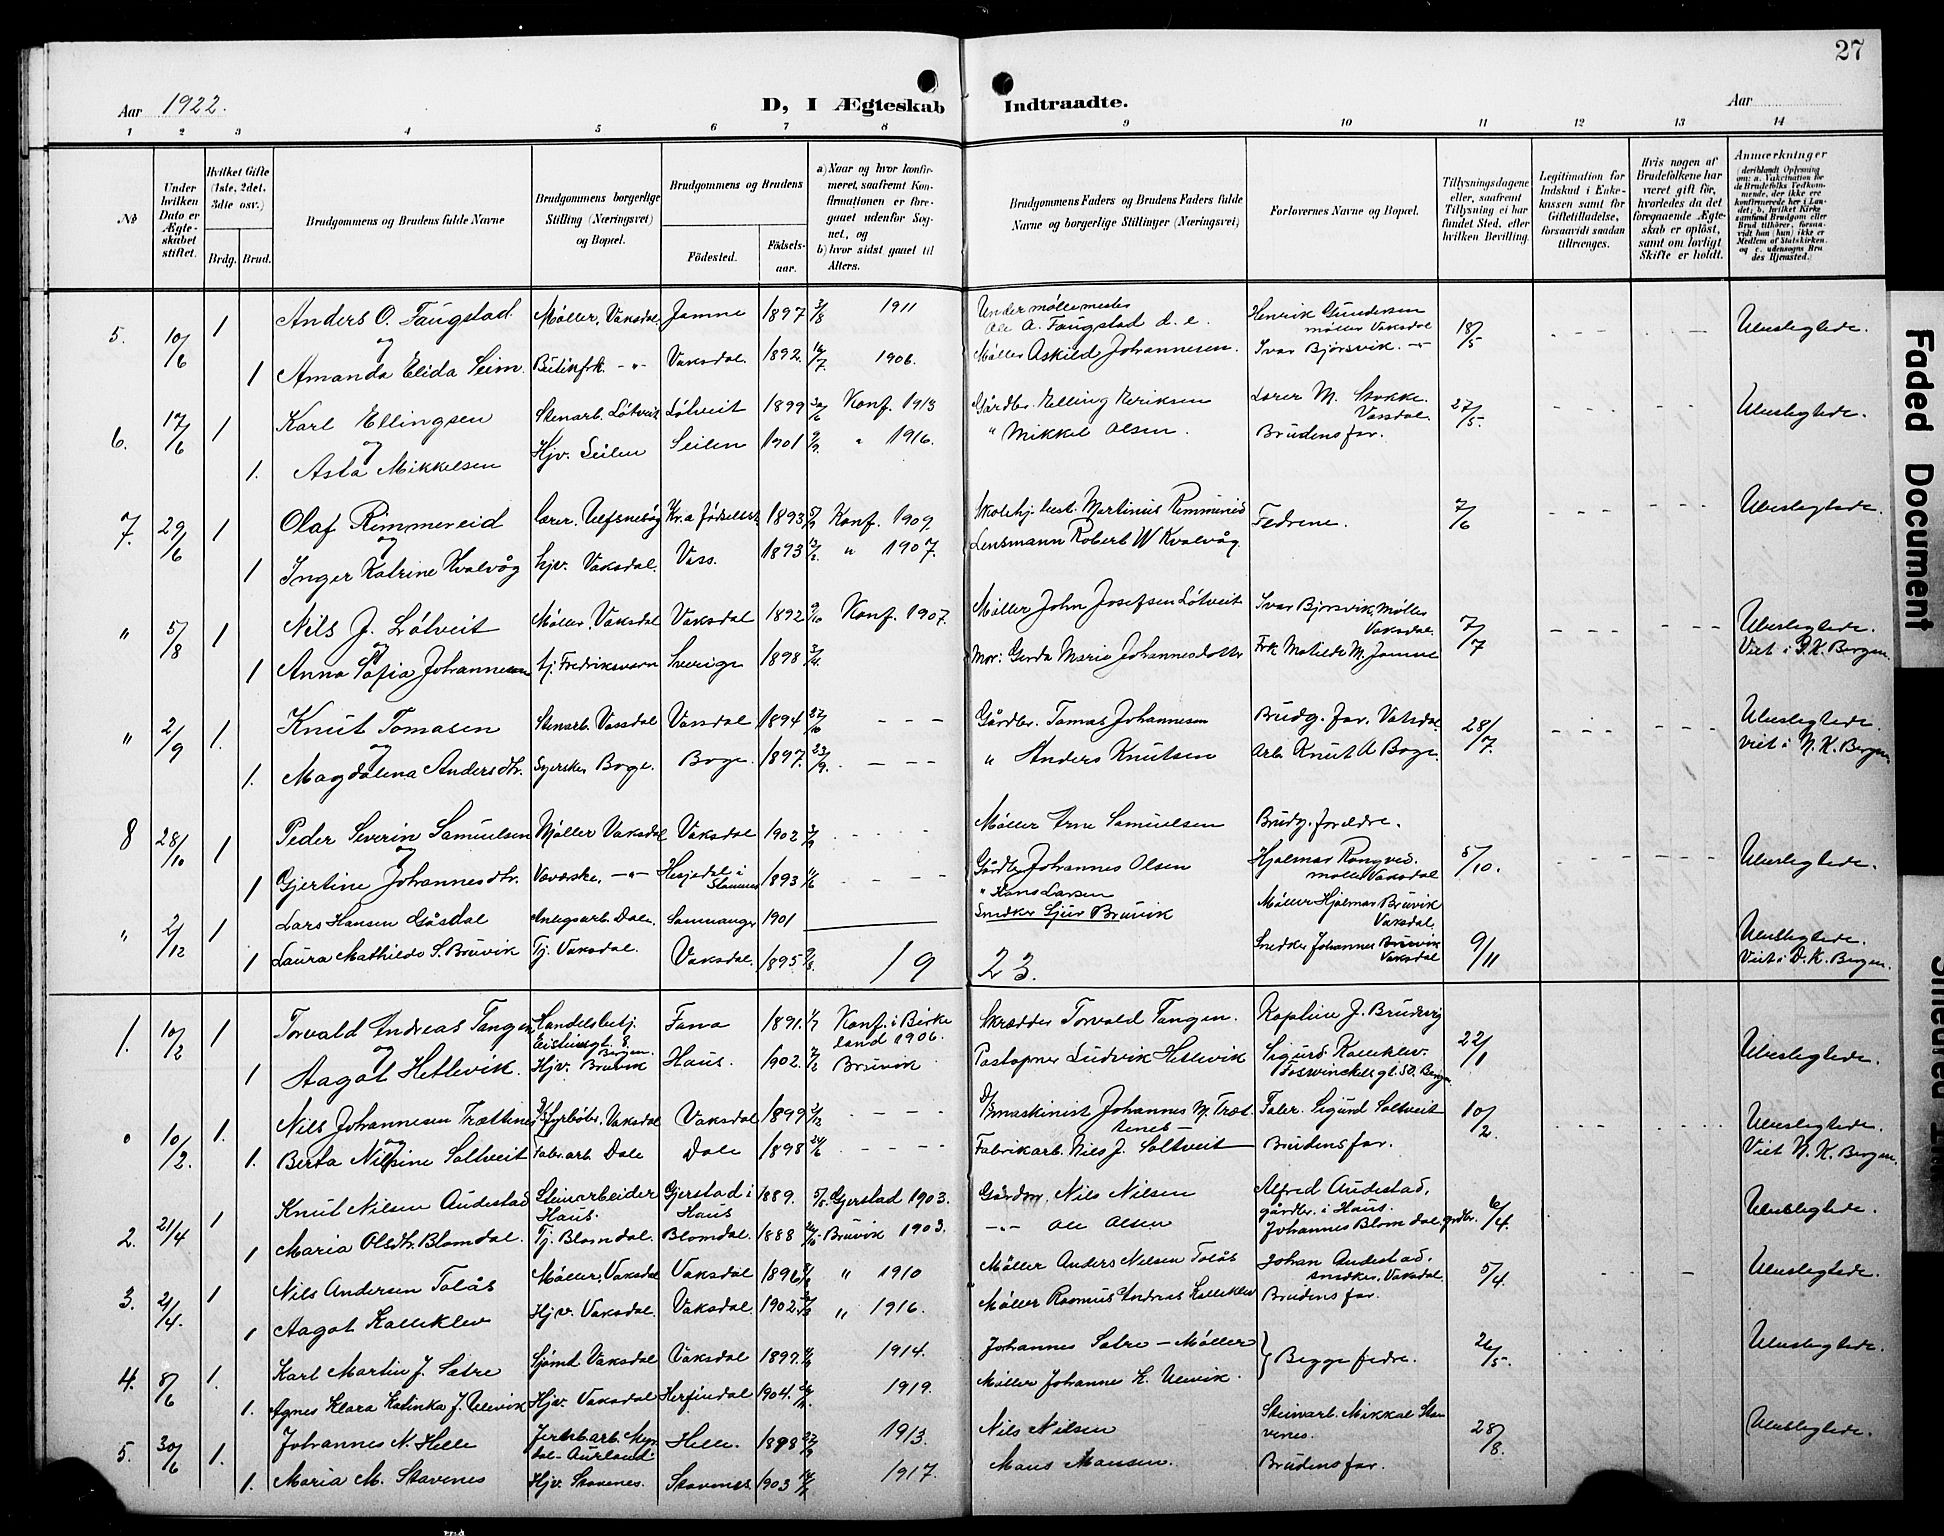 27
Aar 1922.
D, I Ægteskab Indtraadte.
Aar
1 2 3 4 5 6 7 8 9 10 11 12 13 14
No
Under hvilken Dato er Ægteskabet stiftet.
Hvilket Gifte (1ste, 2det, 3dte osv.)
Brdg. Brud.
Brudgommens og Brudens fulde Navne
Brudgommens borgerlige Stilling (Næringsvei) og Bopæl.
Brudgommens og Brudens
Födested.
Födselsaar.
a) Naar og hvor konfirmeret, saafremt Konfirmationen er foregaaet udenfor Sognet, og
b) hvor sidst gaaet til Alters.
Brudgommens Faders og Brudens Faders fulde Navne og borgerlige Stillinger (Næringsvei)
Forlovernes Navne og Bopæl.
Tillysningsdagene eller, saafremt Tillysning ei har fundet Sted, efter hvilken Bevilling.
Legitimation for Indskud i Enkekassen samt for Giftetilladelse, forsaavidt saadan tiltrænges.
Hvis nogen af Brudefolkene har været gift för, hvorledes da det foregaaende Ægteskab er oplöst, samt om lovligt Skifte er holdt.
Anmærkninger
(deriblandt Oplysning om: a. Vakcination for de Brudefolks Vedkommende, der ikke ere konfirmerede her i Landet; b. hvilket Kirkesamfund Brudgom eller Brud tilhörer, forsaavidt han (hun) ikke er Medlem af Statskirken, og c. udensogns Brudes Hjemsted.)
5. 10/6 1 Anders O. Faugstad Møller, Vaksdal Jamne 1897 3/8 1911 Undermøllemester Ole A. Faugstad d. e. Henrik Gundersen møller Vaksdal 18/5 Ubeslegtede.
og
1 Amanda Elida Seim Butikfrk. -"- Vaksdal. 1892. 1906. Møller Askild Johannesen. Ivar Bjørsvik. -"-
6. 17/6 1 Karl Ellingsen Stenarb. Løtveit Løtveit 1899 30/6 Konf. 1913 Gårdbr. Elling Eriksen Lærer M. Stokke. Vaksdal 27/5. Ubeslegtede.
og
1. Asta Mikkelsen Hjv. Seilen Seilen 1901 " 1916. " Mikkel Olsen. Brudens far.
7. 29/6 1 Olaf Rimmereid Lærer. Kr.a fødselsst. 1893 5/9 Konf. 1909. Skolehj. best. Martinus Rimmereid Fedrene. 7/6 Ubeslegtede.
og
1 Inger Katrine Kvalvåg hjv. Vaksdal. Voss. 1893 " 1907. Lensmann Robert W Kvalvåg.
" 5/8 1 Nils J. Løtveit Møller, Vaksdal Vaksdal 1892 9/10 Konf. 1907. Møller John Josefsen Løtveit Ivar Bjørsvik, møller Vaksdal. 7/7 Ubeslegtede.
og
1 Anna Sofia Johannesen tj. Fredriksvern Sverige 1898 Mor: Gerda Marie Johannesdotter Frk Matilde M. Jamne Viet i D.K. Bergen.
" 2/9 1. Knut Tomasen Stenarb. Vaksdal Vaksdal 1894 Gårdbr. Tomas Johannesen Brudg. far, Vaksdal 28/7. Ubeslegtede.
og
1. Magdalena Andersdtr. Syerske, Boge. Boge. 1897. 23/9. " Anders Knutsen arb. Knut A Boge. viet i N. K. Bergen.
8 28/10 1 Peder Severin Samuelsen Møller Vaksdal Vaksdal 1902 Møller Arne Samuelsen Brudg. foreldre.
og
1 Gjertine Johannesdtr. Veverske. -"- Hesjedal i Stamnes 1893 Gårdbr Johannes Olsen Hjalmar Rongved. møller Vaksdal 5/10. Ubeslegtede.
" 2/12 1 Lars Hansen Gåsdal Anlegsarb. Dale, Samnanger 1901 " Hans Larsen Møller Hjalmar Bruvik Vaksdal.
1 Laura Mathilde S. Bruvik Tj. Vaksdal. Vaksdal. 1895 Snedker Sjur Bruvik Snedker Johannes Bruvik Vaksdal 9/11 Ubeslegtede. Viet i D. K. Bergen.
19 23.
1. 10/2 1 Torvald Andreas Tangen Handelsbetj. Bergen. Fana 1891. Konf. i Birkeland 1906. Skrædder Torvald Tangen. Kaptein J. Brudvig 22/1 Ubeslegtede.
og
1 Aagot Hetlevik. Hjv. Bruvik Haus. 1902. Bruvik Postopner Ludvik Hetlevik Sigurd Kalleklev. Foswinckels gt. 50. Bergen
" 10/2. 1. Nils Johannesen Trættenes Fyrbøter, Vaksdal Vaksdal 1899 maskinist Johannes N. Trættenes Faler. Sigurd Soltveit 10/2. Ubeslegtede.
og
1. Berta Nilsine Soltveit Fabr. arb. Dale Dale 1898 Fabrikarb. Nils J. Soltveit Brudens far. Viet N. K. Bergen.
2. 21/4 1 Knut Nilsen Audestad Steinarbeider Haus. Gjerstad i Haus 1889. 5/5. Gjerstad 1903. Gårdm. Nils Nilsen Alfred Audestad, gårdbr. i Haus. 6/4 Ubeslegtede.
1 Maria Olsdtr. Blomdal. Tj. Blomdal. Blomdal. 1888 Bruvik 1903. -"- Ole Olsen Johannes Blomdal, grdbr.
3. 21/4. 1 Nils Andersen Tolås Møller, Vaksdal Vaksdal 1896 " 1910 Møller Anders Nilsen Tolås Johan Audestad, snedker, Vaksdal. 5/4. Ubeslegtede.
1 Aagot Kalleklev Hjv. Vaksdal. Vaksdal. 1902. " 1916. Møller Rasmus Andreas Kalleklev Brudens far.
4. 8/6 1. Karl Martin J. Satre Sjømd Vaksdal Vaksdal 1897. 1914. Johannes Satre - Møller Begge fedre. 26/5. Ubeslegtede.
1. Agnes Klara Katinka J. Ulevik Hjv. Vaksdal Herfindal 1904. 1919. Møller Johanne K. Ulevik.
5. 30/6 1. Johannes N. Helle Jernb. arb. Myrdal-Aurland Helle. 1898 1913. Nils Nilsen Steinarb. Mikkal Stavenes. 28/8. Ubeslegtede.
1. Maria M. Stavenes Hjv. Stavenes. Stavenes 1903 1917. Mons Monsen. Brudens far.
Faded Document